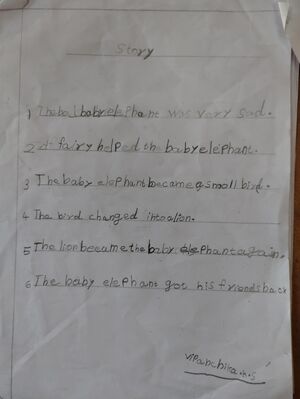 Story
1 The baby elephant was very sad.
2 A fairy helped the baby elephant.
3 The baby elephant became a small bird.
4 The bird changed into a lion.
5 The lion became the baby elephant again.
6 The baby elephant got his friends back
Vipanchika.H.S